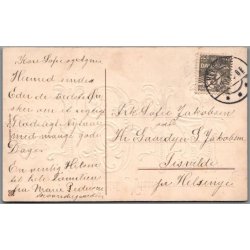 Kære Sofie og Agnes
Hermed sendes
Eder de bedste Øn-
sker om et rigtig
Glædeligt Nytaar
med mange gode
Dage
En venlig Hilsen
til hele Familien
fra Marie
Frk Sofie Jakobsen
adr
Hr Gaardejer S. Jakobsen
Tisvilde
pr Helsinge